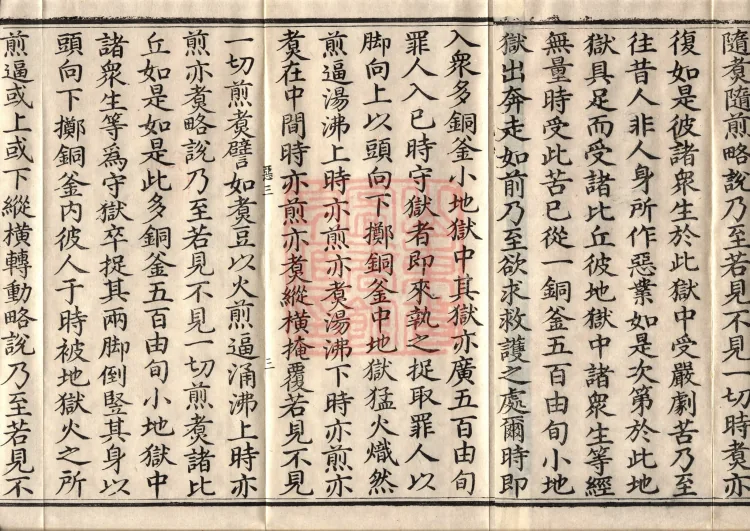 隨煑隨煎略說乃至若見不見一切時煑亦
復如是彼諸衆生於此獄中受嚴劇苦乃至
往昔人非人身所作惡業如是次第於此地
獄具足而受諸比丘彼地獄中諸衆生等經
無量時受此苦已從一銅釜五百由旬小地
獄出奔走如前乃至欲求救護之處爾時即
入衆多銅釜小地獄中其獄亦廣五百由旬
罪人入已時守獄者即來執之捉取罪人以
脚向上以頭向下擲銅釜中地獄猛火熾然
煎逼湯沸上時亦煎亦煑湯沸下時亦煎亦
煑在中間時亦煎亦煑縱橫掩覆若見不見
三
一切煎煑譬如煑豆以火煎逼涌沸上時亦
煎亦煑略說乃至若見不見一切煎煑諸比
丘如是如是此多銅釜五百由旬小地獄中
諸衆生等爲守獄卒捉其兩脚倒豎其身以
頭向下擲銅釜内彼人于時被地獄火之所
煎逼或上或下縱橫轉動略說乃至若見不